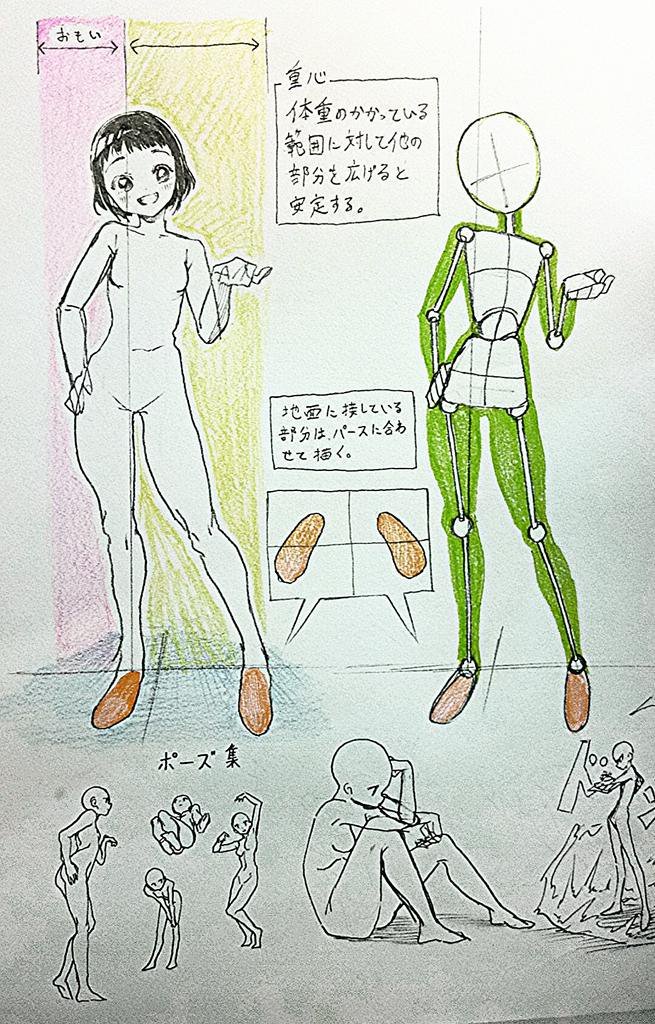 おもい
重心
体重のかかっている
範囲に対して他の
部分を広げると
安定する。
地面に接している
部分は、パースに合わ
せて描く。
ポーズ集